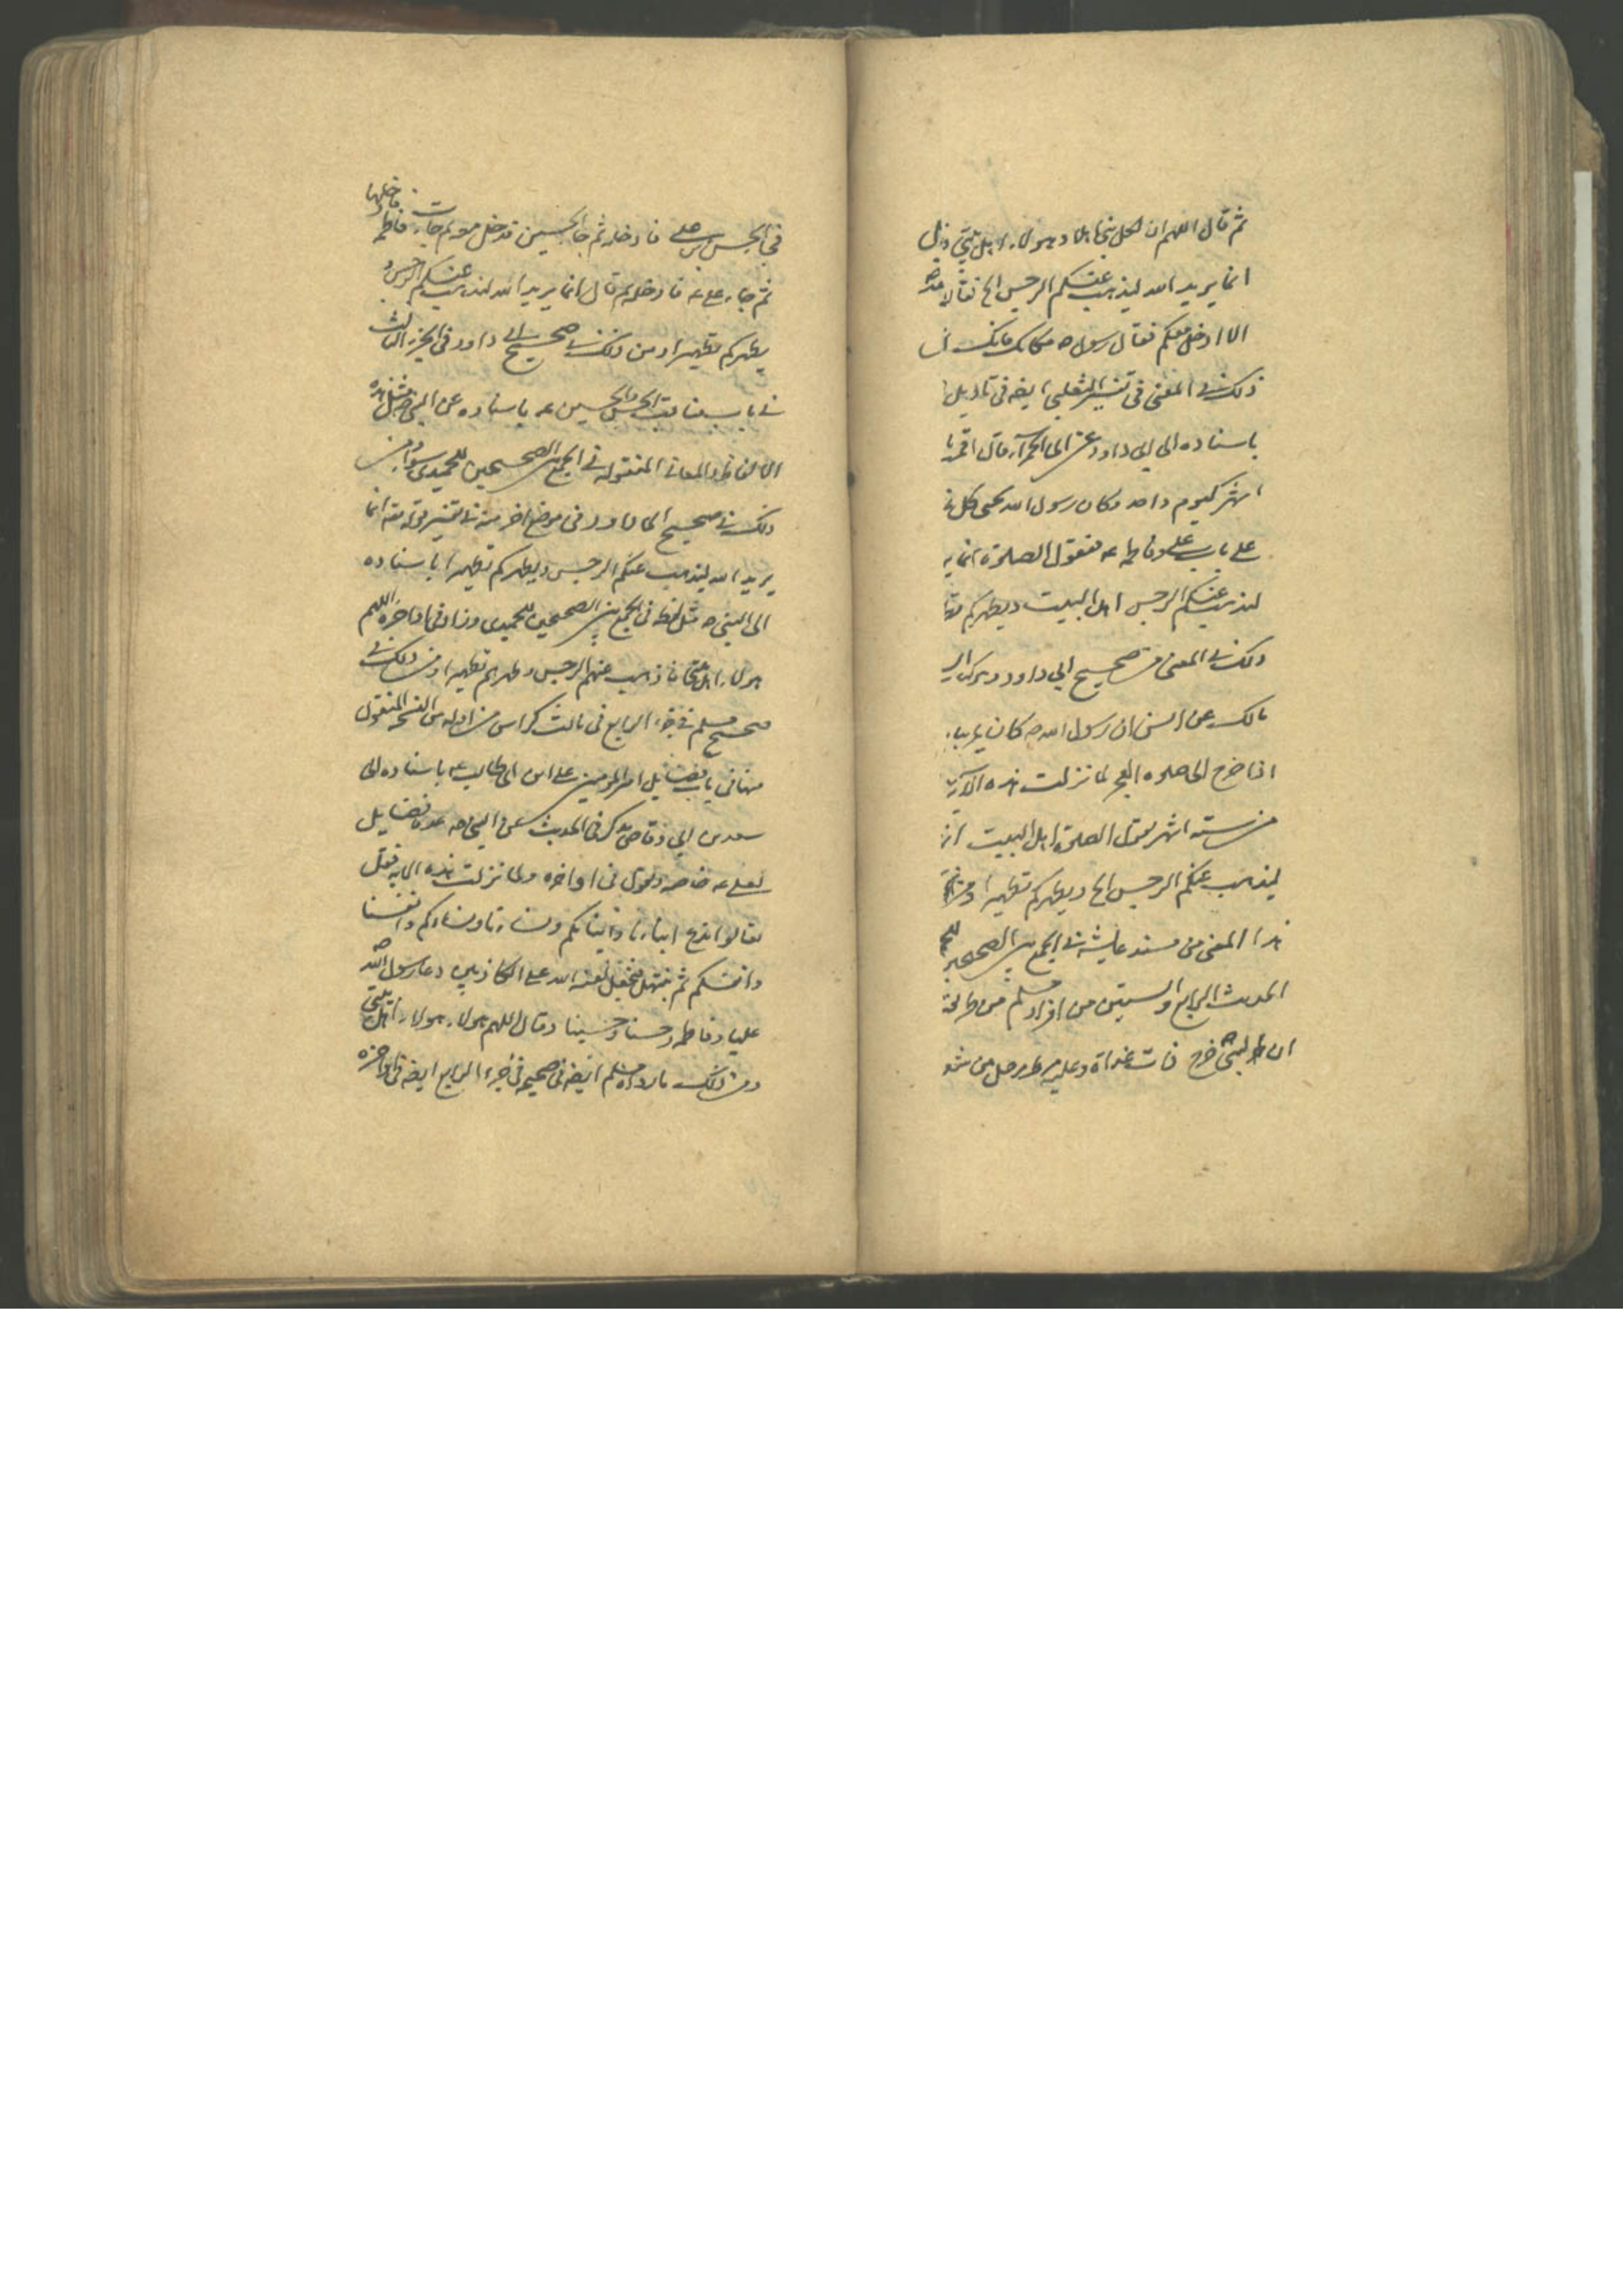 ثم قال اللهم ان لكل نبي اهلا وهولاء اهل بيتي
انما يريد الله ليذهب عنكم الرجس الخ فقالت
الا ادخل معكم فقال رسول ص مكانك فانك
ذلك في المعنى في تفسير الثعلبي ايضه في تاويل
باسناده الى ابي داود عن ابي الحمرآء قال اقمت
اشهر كيوم واحد وكان رسول الله يجي كل
على باب على وفاطمه ع فيقول الصلوة انما ير
ليذهب عنكم الرجس اهل البيت ويطهركم
ذلك في المعنى من صحيح ابي داود
مالك عن انس ان رسول الله ص كان يمر بباب
اذا خرج الى صلوه الفجر لما نزلت هذه الاية
من سته اشهر يقول الصلوة اهل البيت
ليذهب عنكم الرجس الخ ويطهركم تطهيرا
هذا المعنى من مسند عايشه في الجمع بين الصحيحين
الحديث الرابع والستين من افراد مسلم من
ان النبي ص خرج ذات غداة وعليه مرط مرحل من شعر
في الحسن بن على فادخله ثم جا الحسين فدخل معه ثم جاءت فاطمه فادخلها
ثم جاء على ع فادخله ثم قال انما يريد الله ليذهب عنكم الرجس و
يطهركم تطهيرا ومن ذلك في صحيح ابي داود في الجزء الثالث
في باب مناقب الحسن والحسين ع باسناده عن النبي ص مثل هذه
الالفاظ والمعاني المنقوله في الجمع بين الصحيحين للحميدي سواء ومن
ذلك في صحيح ابي داود في موضع اخر منه في تفسير قوله تعه انما
يريد الله ليذهب عنكم الرجس ويطهركم تطهيرا باسناده
الى النبي ص مثل لفظه في الجمع بين الصحيحين للحميدي وزاد في اواخره اللهم
هولاء اهل بيتي فاذهب عنهم الرجس وطهرهم تطهيرا ومن ذلك في
صحيح مسلم في جزء الرابع في ثالث كراس من اوله من النسخ المنقول
منها في باب فضايل امير المومنين على ابن ابي طالب ع باسناده الى
سعد بن ابي وقاص يذكر في الحديث عن النبي ص عده فضايل
لعلى ع خاصه ويقول في اواخره ولما نزلت هذه الايه فقل
تعالوا ندع ابناءنا وابناءكم ونساءنا ونساءكم وانفسنا
وانفسكم ثم نبتهل فنجعل لعنه الله على الكاذبين دعا رسول الله ص
عليا وفاطمه وحسنا وحسينا وقال اللهم هولاء هولاء اهل بيتي
ومن ذلك ما رواه مسلم ايضه في صحيحه في جزء الرابع ايضه في اواخره